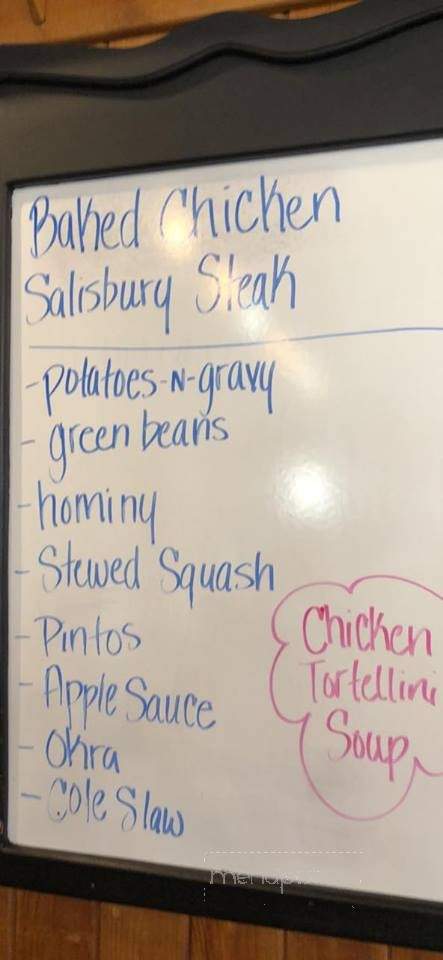 Baked Chicken
Salisbury Steak
-potatoes-N-gravy
- green beans
-hominy
- Stewed Squash
- Pintos
- Apple Sauce
- Okra
- Cole Slaw
Chicken
Tortellini
Soup